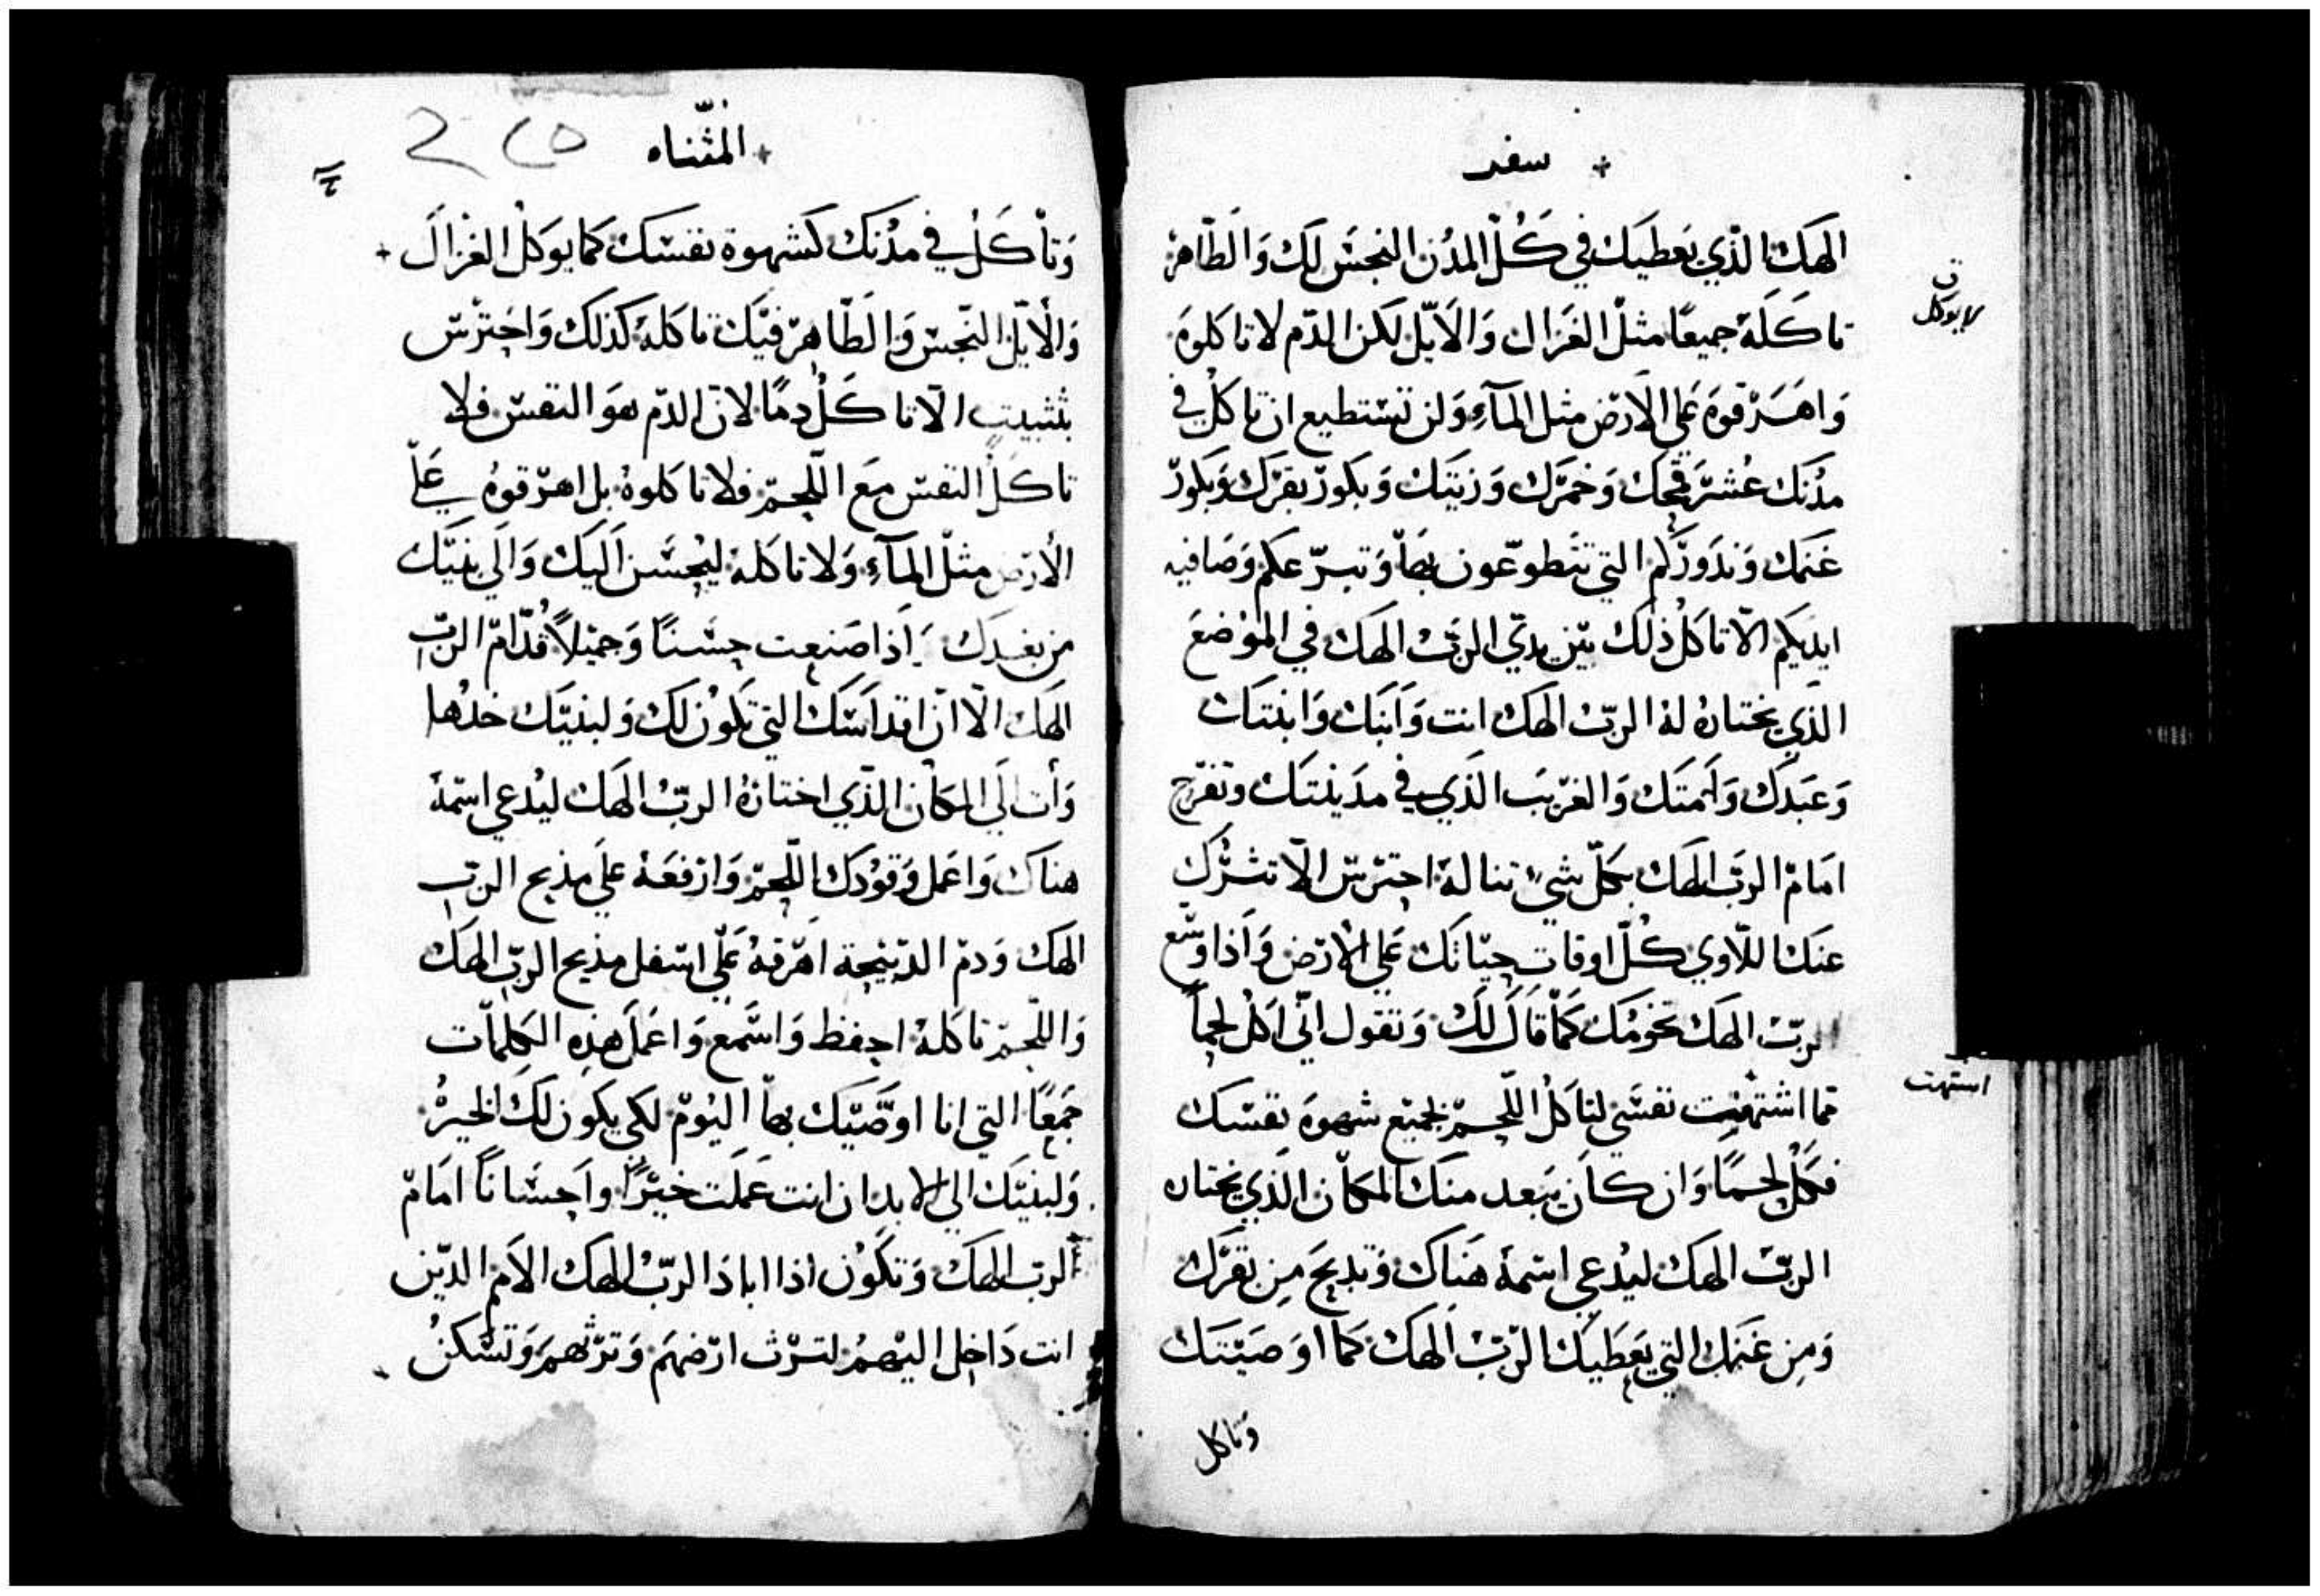 + سفر
الهك الذي يعطيك في كل المدن النجس لك والطاهر
تاكله جميعًا مثل الغزال والايل لكن الدم لا تاكلوه
لا يوكل
واهرقوه علي الارض مثل المآء ولن تستطيع ان تاكل في
مدنك عشر قمحك وخمرك وزيتك وبكور بقرك وبكور
غنمك ونذوركم التي تتطوعون بها وتبرعكم وصافيه
ايديكم الا تاكل ذلك بين يدي الرب الهك في الموضع
الذي يختاره له الرب الهك انت وابنك وابنتك
وعبدك وامتك والغريب الذي في مدينتك وتفرح
امام الرب الهك بكل شيء تناله احترس الا تترك
عنك اللاوي كل اوقات حياتك علي الارض واذا وسع
الرب الهك تخومك كما قال لك وتقول اني اكل لحماً
اشتهت
مما اشتهيت نفسي لتاكل اللحم بجميع شهوة نفسك
فكل لحمًا وان كان يبعد منك المكان الذي يختاره
الرب الهك ليدعي اسمه هناك وتذبح من بقرك
ومن غنمك التي يعطيك الرب الهك كما اوصيتك
وتاكل
+ المثناه
وتاكل في مدنك كشهوة نفسك كما يوكل الغزال +
والايل النجس والطاهر فيك تاكله كذلك واحترس
بتثبيت الا تاكل دمًا لان الدم هو النفس فلا
تاكل النفس مع اللحم فلا تاكلوه بل اهرقوه علي
الارض مثل المآء ولا تاكله ليحسن اليك والي بنيك
من بعدك اذا صنعت حسنًا وجميلاً قدام الرب
الهك الا ان اقداسك التي تكون لك ولبنيك خذها
وات الي المكان الذي اختاره الرب الهك ليدعي اسمه
هناك واعمل وقودك اللحم وارفعه علي مذبح الرب
الهك ودم الذبيحة اهرقه علي اسفل مذبح الرب الهك
واللحم تاكله احفظ واسمع واعمل هذه الكلمات
جمعًا التي انا اوصيك بها اليوم لكي يكون لك الخير
ولبنيك الي الابد ان انت عملت خيرًا واحساناً امام
الرب الهك وتكون اذا اباد الرب الهك الامم الذين
انت داخل اليهم لترث ارضهم وترثهم وتسكن